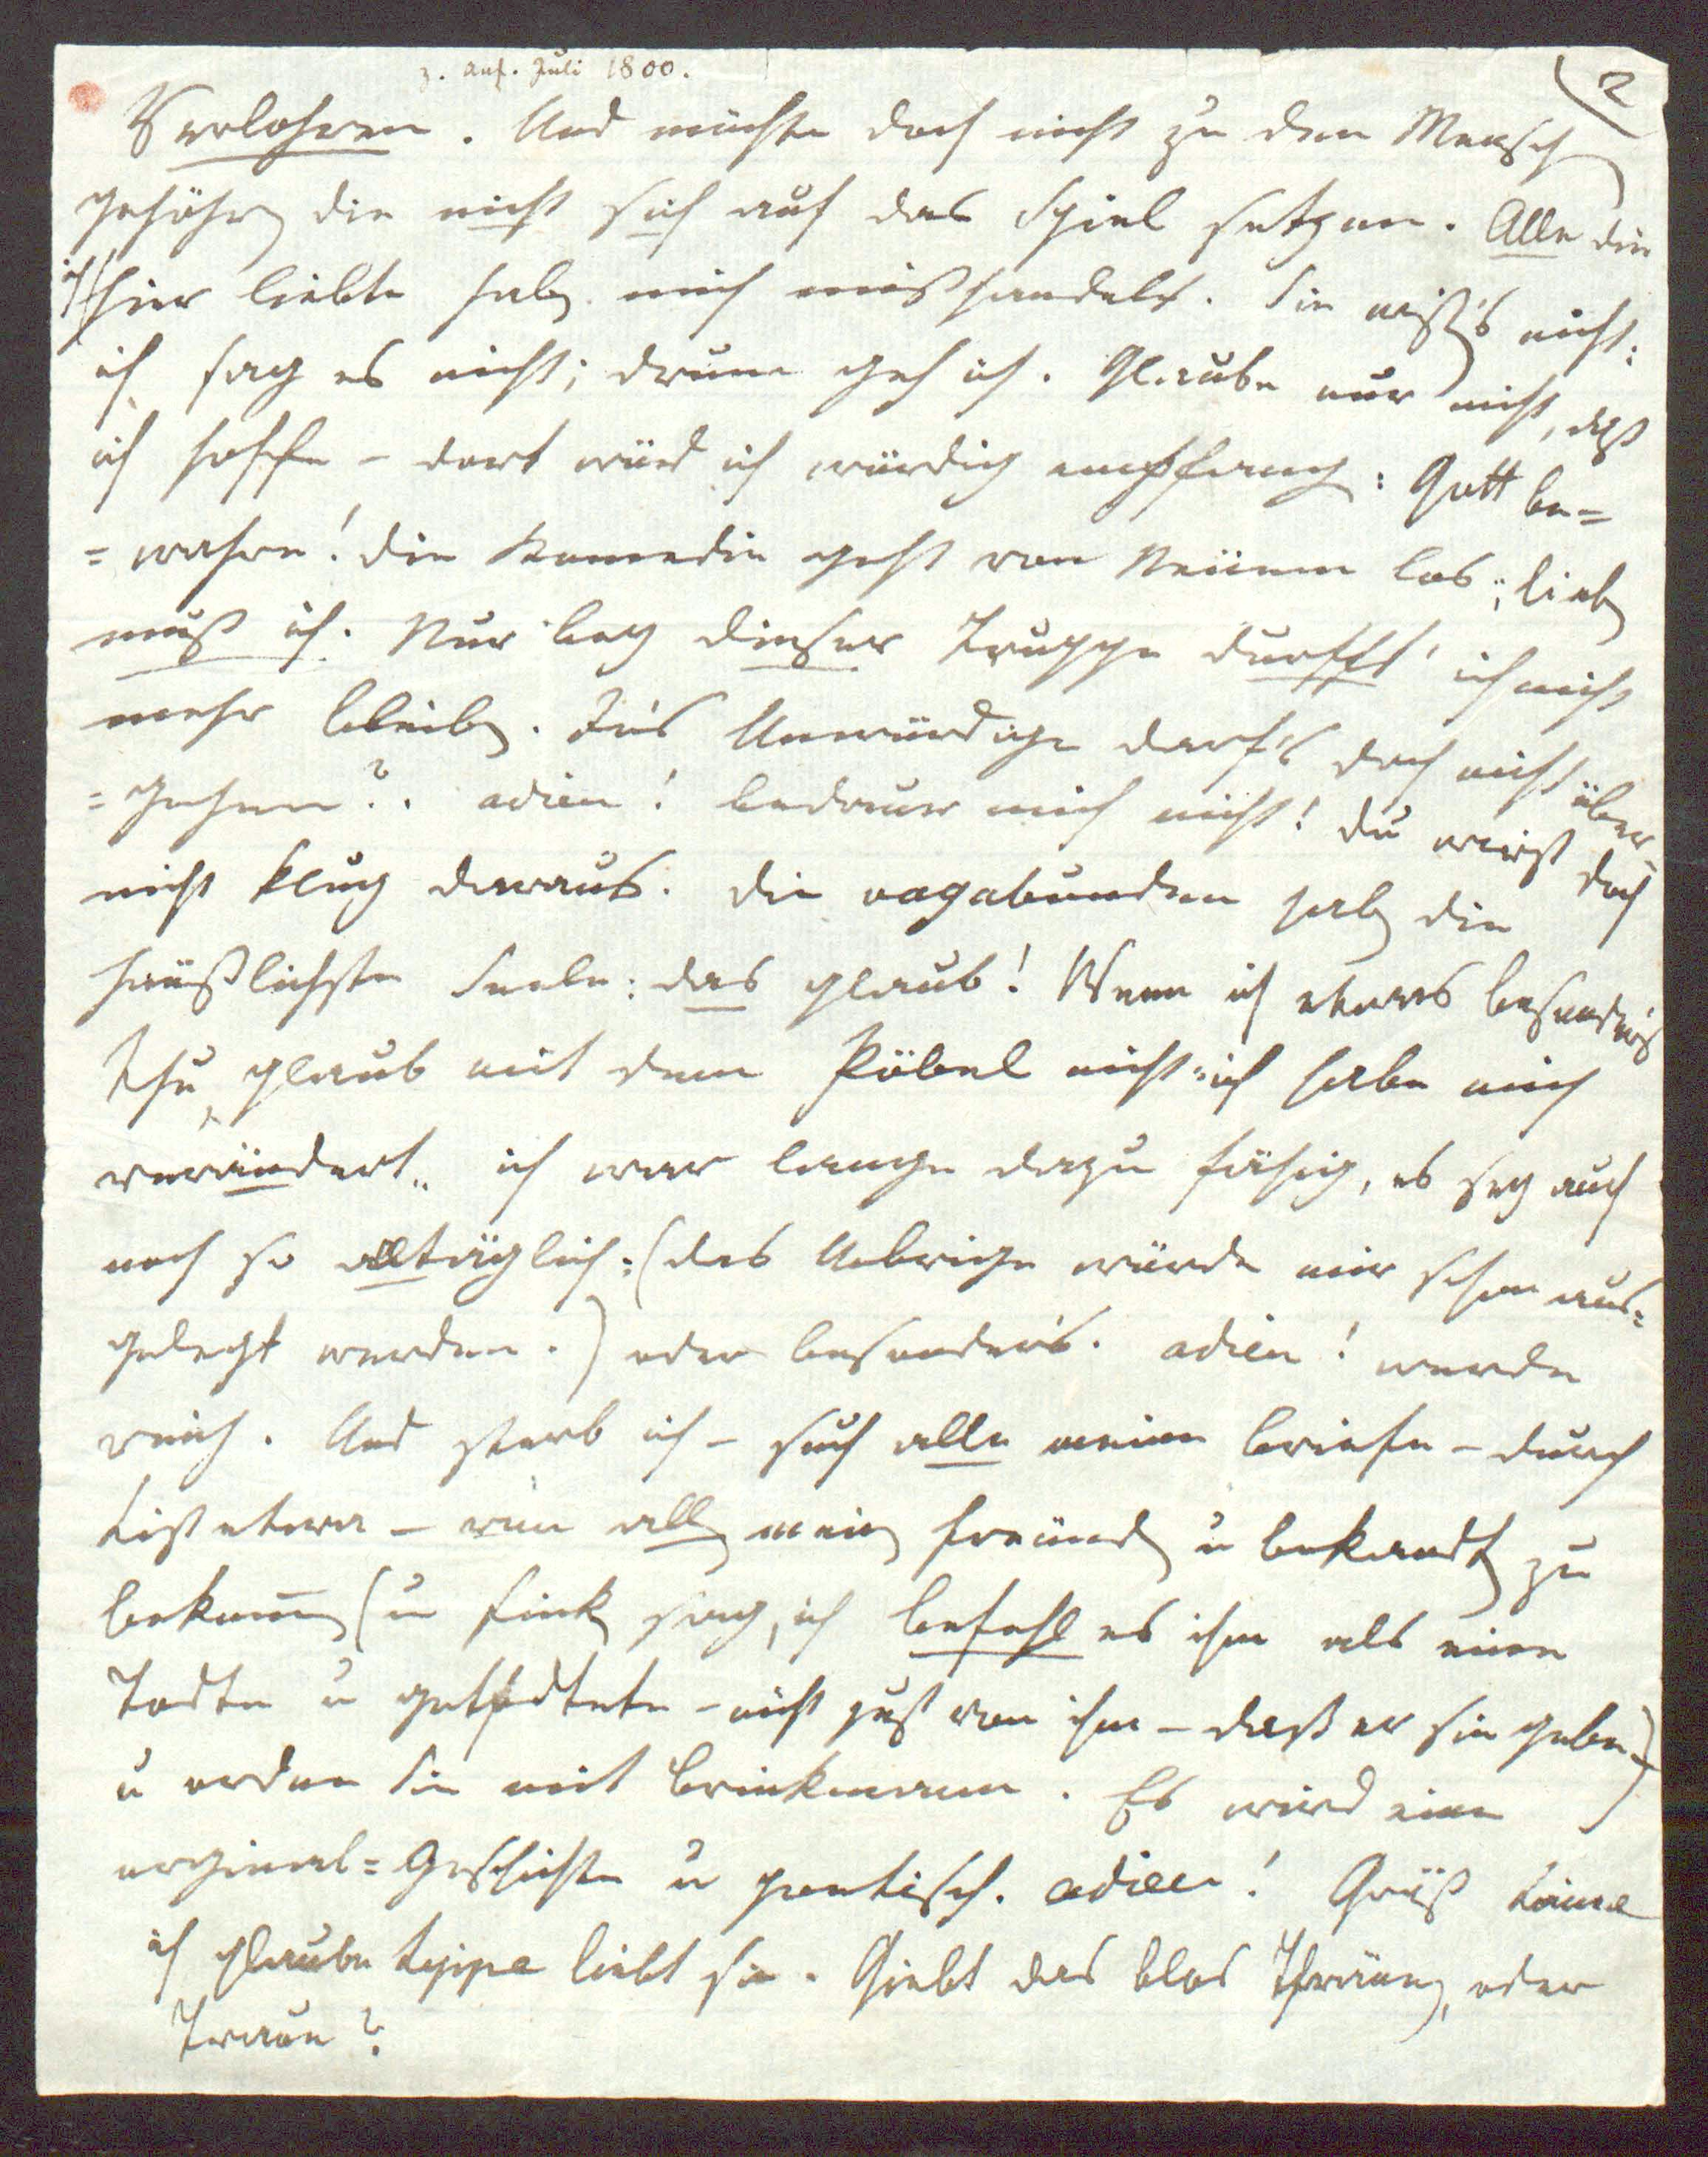 z. Anf. Juli 1800.
2
Verlohren. Und möchte doch nicht zu den Mensch
gehöhren die nicht sich auf das Spiel setzen. Alle die
ich hier liebte haben mich mißhandelt. Sie wißen's nicht:
ich sag es nicht; drum geh ich. Glaube nur nicht, daß
ich hoffe – dort würd ich würdig empfangen: Gott be=
=wahre! die Komedie geht von Neüem los; lieben
muß ich. Nur bey dieser Truppe durfft' ich nicht
mehr bleiben. In's Unwürdige darf's doch nicht über=
=gehen?. adieu! bedaure mich nicht! du wirst doch
nicht klug daraus. die vagabunden haben die
häußlichste Seele: das glaub! Wenn ich etwas besonder's
thu, glaub mit dem Pöbel nicht „ich habe mich
verändert„ ich war lange dazu fähig, es sey auch
noch so alltäglich: (das Uebrige würde mir schon aus=
gelegt werden.) oder besonder's. adieu! werde
reich. Und sterb ich – such alle meine briefe – durch
List etwa – von allen meinen freünden u bekandten zu
bekommen (u Finken sag, ich befehl es ihm als eine
Todte u getödtete – nicht just von ihm – daß er sie gebe)
u ordne Sie mit brinkmann. Es wird eine
orginal=Geschichte u poetisch. adieu! Grüß
ich glaube Lippe liebt sie. Giebt das blos Thränen, oder
Traue?